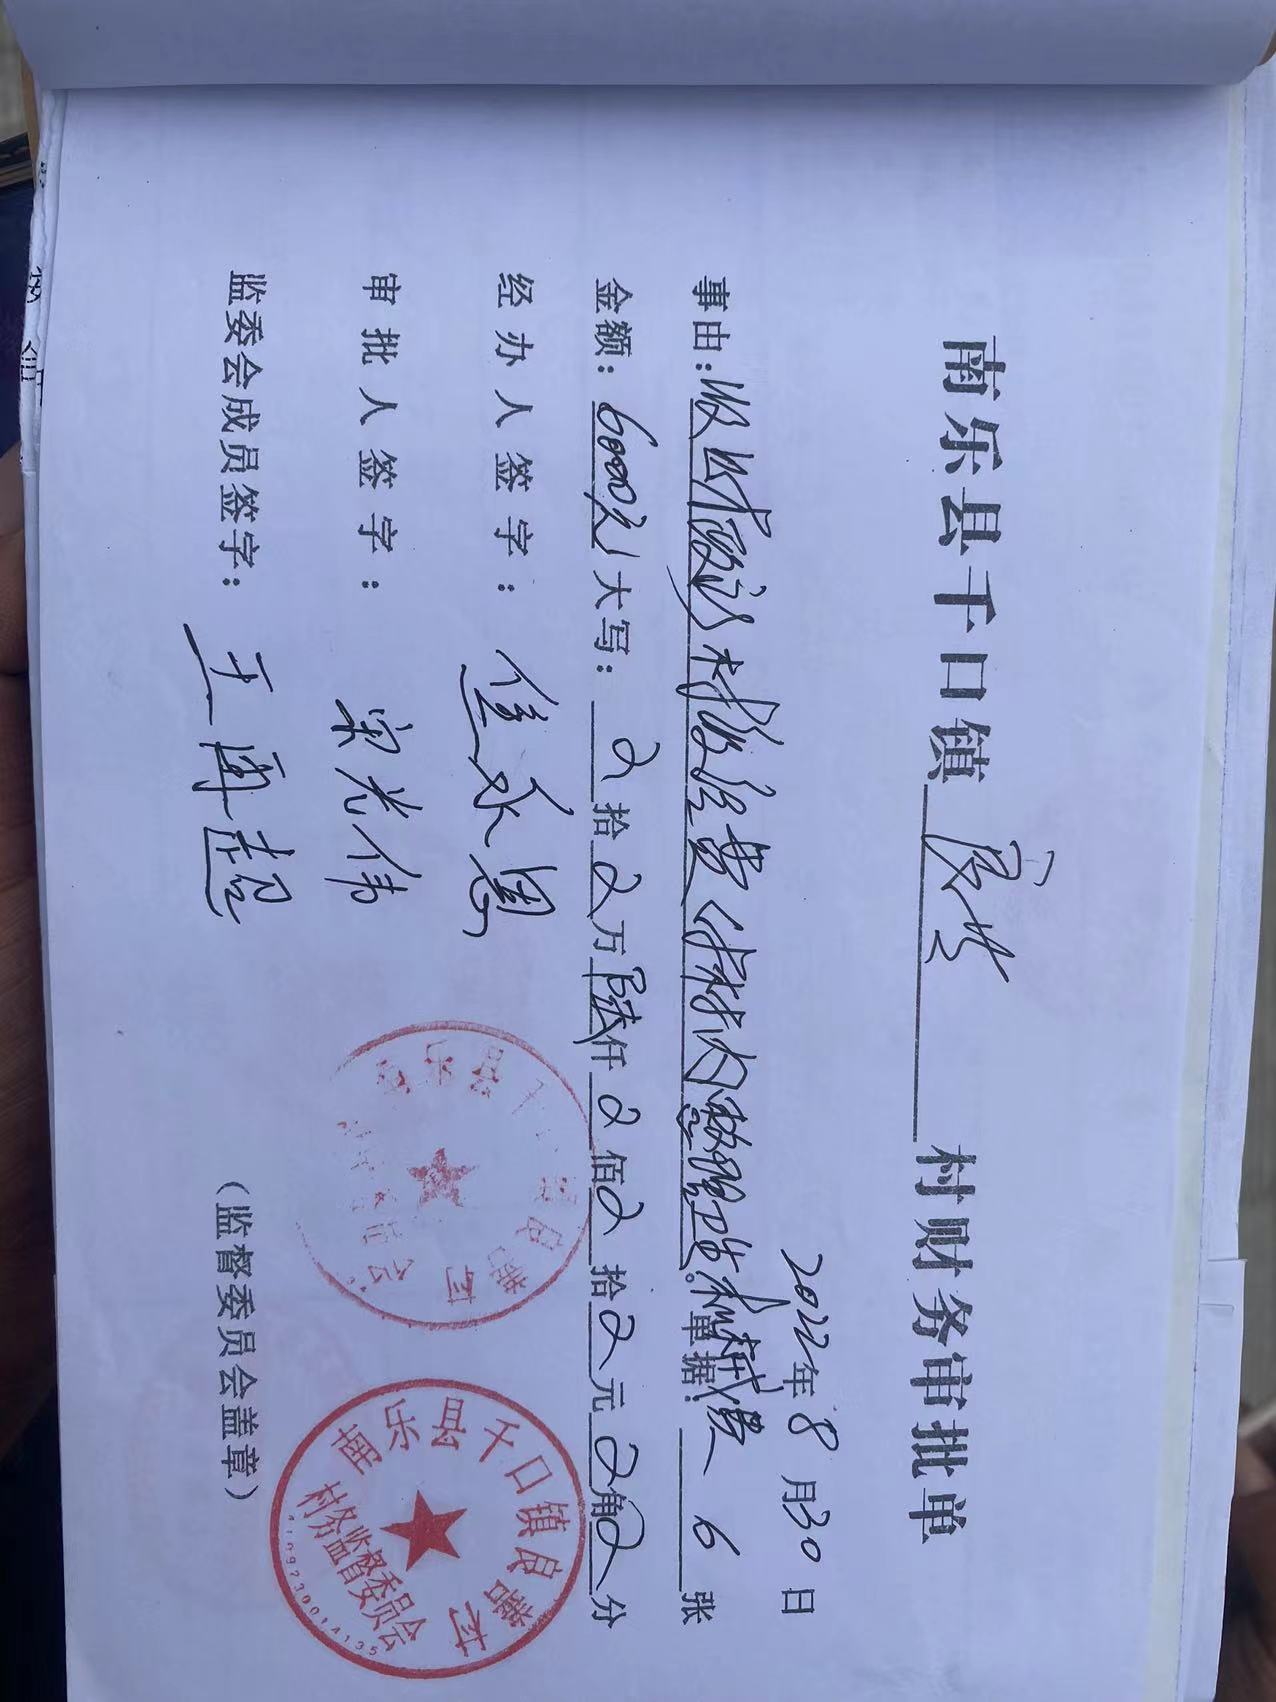 南乐县千口镇 良善 村财务审批单
2022年8月30日
事由：收财政所村级经费（付村内整理卫生和耕费。单据：6张
金额：6000元 大写： 拾 万陆仟 佰 拾 元 角 分
经办人签字：
审批人签字：宋光伟
监委会成员签字：王再超
（监督委员会盖章）
南乐县千口镇良善村
村务监督委员会
4109230014135